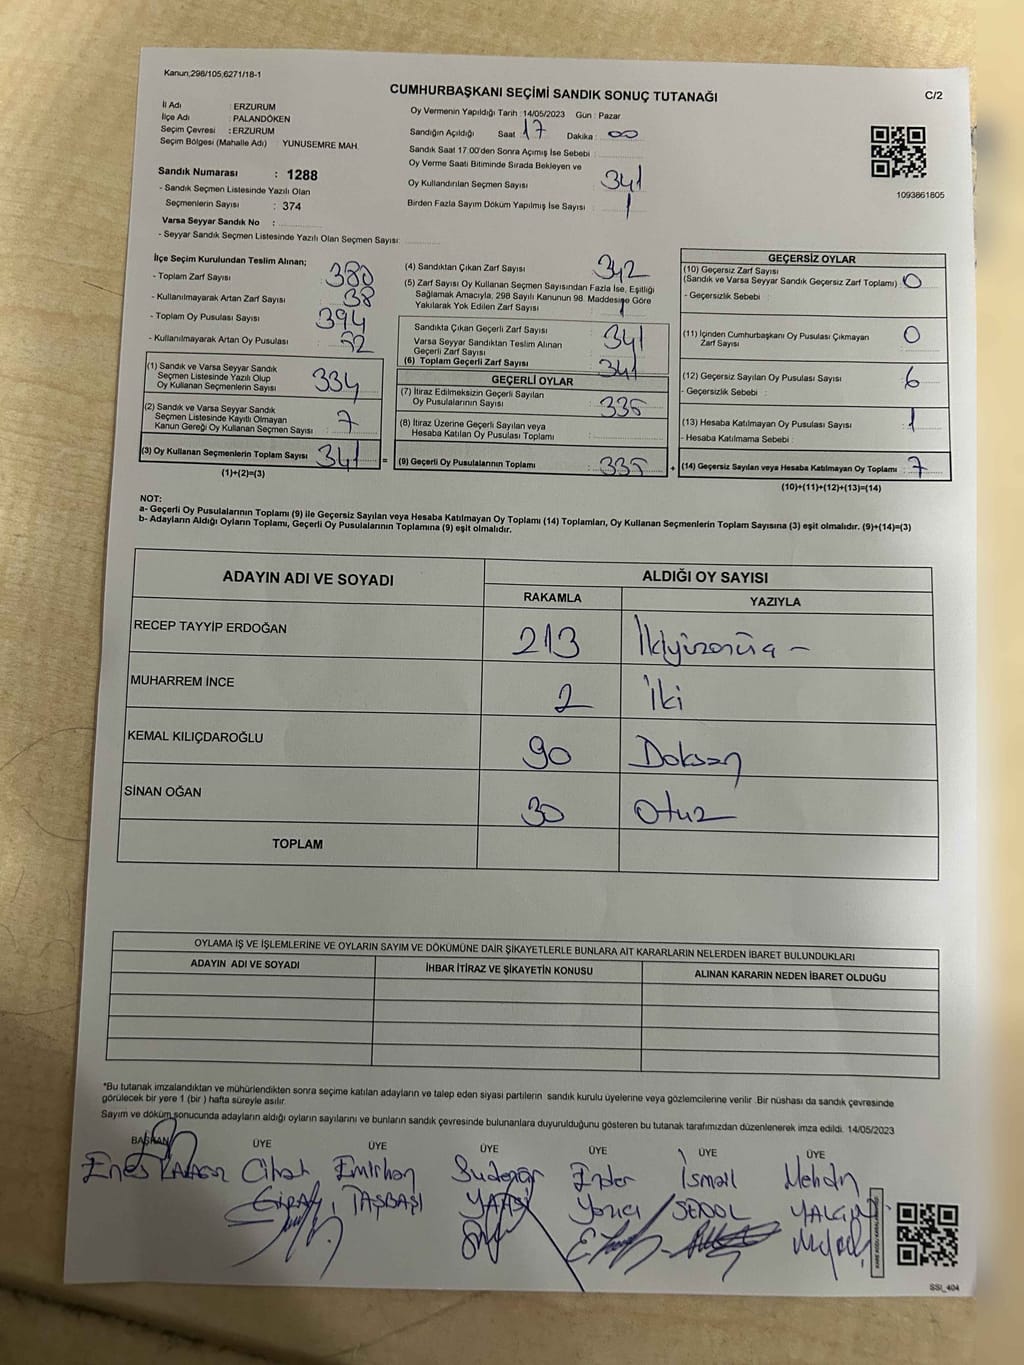 Kanun,298/105,6271/18-1
CUMHURBAŞKANI SEÇİMİ SANDIK SONUÇ TUTANAĞI
C/2
İl Adı : ERZURUM
İlçe Adı : PALANDÖKEN
Seçim Çevresi : ERZURUM
Seçim Bölgesi (Mahalle Adı) YUNUSEMRE MAH.
Oy Vermenin Yapıldığı Tarih : 14/05/2023 Gün : Pazar
Sandığın Açıldığı Saat 17 Dakika : 00
Sandık Saat 17.00'den Sonra Açımış İse Sebebi :
Oy Verme Saati Bitiminde Sırada Bekleyen ve
Oy Kullandırılan Seçmen Sayısı 341
Birden Fazla Sayım Döküm Yapılmış İse Sayısı : 1
1093861805
Sandık Numarası : 1288
- Sandık Seçmen Listesinde Yazılı Olan
Seçmenlerin Sayısı : 374
Varsa Seyyar Sandık No :
- Seyyar Sandık Seçmen Listesinde Yazılı Olan Seçmen Sayısı:
İlçe Seçim Kurulundan Teslim Alınan;
- Toplam Zarf Sayısı 380
- Kullanılmayarak Artan Zarf Sayısı : 38
- Toplam Oy Pusulası Sayısı 394
- Kullanılmayarak Artan Oy Pusulası
(1) Sandık ve Varsa Seyyar Sandık
Seçmen Listesinde Yazılı Olup
Oy Kullanan Seçmenlerin Sayısı 334
(2) Sandık ve Varsa Seyyar Sandık
Seçmen Listesinde Kayıtlı Olmayan
Kanun Gereği Oy Kullanan Seçmen Sayısı : 7
(3) Oy Kullanan Seçmenlerin Toplam Sayısı 341
(1)+(2)=(3)
(4) Sandıktan Çıkan Zarf Sayısı : 342
(5) Zarf Sayısı Oy Kullanan Seçmen Sayısından Fazla İse, Eşitliği
Sağlamak Amacıyla, 298 Sayılı Kanunun 98. Maddesine Göre
Yakılarak Yok Edilen Zarf Sayısı : 1
Sandıkta Çıkan Geçerli Zarf Sayısı 341
Varsa Seyyar Sandıktan Teslim Alınan
Geçerli Zarf Sayısı
(6) Toplam Geçerli Zarf Sayısı 341
GEÇERLİ OYLAR
(7) İtiraz Edilmeksizin Geçerli Sayılan
Oy Pusulalarının Sayısı : 335
(8) İtiraz Üzerine Geçerli Sayılan veya
Hesaba Katılan Oy Pusulası Toplamı :
(9) Geçerli Oy Pusulalarının Toplamı : 335
GEÇERSİZ OYLAR
(10) Geçersiz Zarf Sayısı
(Sandık ve Varsa Seyyar Sandık Geçersiz Zarf Toplamı) : 0
- Geçersizlik Sebebi :
(11) İçinden Cumhurbaşkanı Oy Pusulası Çıkmayan
Zarf Sayısı 0
(12) Geçersiz Sayılan Oy Pusulası Sayısı : 6
- Geçersizlik Sebebi :
(13) Hesaba Katılmayan Oy Pusulası Sayısı : 1
- Hesaba Katılmama Sebebi :
(14) Geçersiz Sayılan veya Hesaba Katılmayan Oy Toplamı : 7
(10)+(11)+(12)+(13)=(14)
NOT:
a- Geçerli Oy Pusulalarının Toplamı (9) ile Geçersiz Sayılan veya Hesaba Katılmayan Oy Toplamı (14) Toplamları, Oy Kullanan Seçmenlerin Toplam Sayısına (3) eşit olmalıdır. (9)+(14)=(3)
b- Adayların Aldığı Oyların Toplamı, Geçerli Oy Pusulalarının Toplamına (9) eşit olmalıdır.
ADAYIN ADI VE SOYADI ALDIĞI OY SAYISI
RAKAMLA YAZIYLA
RECEP TAYYİP ERDOĞAN 213
MUHARREM İNCE 2 İki
KEMAL KILIÇDAROĞLU 90 Doksan
SİNAN OĞAN 30 Otuz
TOPLAM
OYLAMA İŞ VE İŞLEMLERİNE VE OYLARIN SAYIM VE DÖKÜMÜNE DAİR ŞİKAYETLERLE BUNLARA AİT KARARLARIN NELERDEN İBARET BULUNDUKLARI
ADAYIN ADI VE SOYADI İHBAR İTİRAZ VE ŞİKAYETİN KONUSU ALINAN KARARIN NEDEN İBARET OLDUĞU
*Bu tutanak imzalandıktan ve mühürlendikten sonra seçime katılan adayların ve talep eden siyasi partilerin sandık kurulu üyelerine veya gözlemcilerine verilir .Bir nüshası da sandık çevresinde
görülecek bir yere 1 (bir ) hafta süreyle asılır.
Sayım ve döküm sonucunda adayların aldığı oyların sayılarını ve bunların sandık çevresinde bulunanlara duyurulduğunu gösteren bu tutanak tarafımızdan düzenlenerek imza edildi. 14/05/2023
BAŞKAN ÜYE ÜYE ÜYE ÜYE ÜYE ÜYE
Enes Cihat Emirhan Ender İsmail
TAŞBAŞI Yazıcı
SSI_404